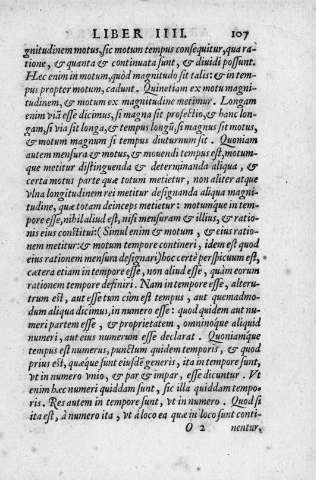 LIBER IIII. 107
gnitudinem motus, sic motum tempus consequitur, qua ra-
tione, & quanta & continuata sunt, & diuidi possunt.
Hæc enim in motum, quòd magnitudo sit talis: & in tem-
pus propter motum, cadunt. Quinetiam ex motu magni-
tudinem, & motum ex magnitudine metimur. Longam
enim viã esse dicimus, si magna sit profectio, & hanc lon-
gam, si via sit longa, & tempus longũ, si magnus sit motus,
& motum magnum si tempus diuturnum sit. Quoniam
autem mensura & motus, & mouendi tempus est, motum-
que metitur distinguenda & determinanda aliqua, &
certa motus parte quæ totum metietur, non aliter atque
vlna longitudinem rei metitur designanda aliqua magni-
tudine, quæ totam deinceps metitur: motumque in tem-
pore esse, nihil aliud est, nisi mensuram & illius, & ratio-
nis eius constitui: (Simul enim & motum, & eius ratio-
nem metitur: & motum tempore contineri, idem est quod
eius rationem mensura designari) hoc certè perspicuum est,
cætera etiam in tempore esse, non aliud esse, quàm eorum
rationem tempore definiri. Nam in tempore esse, alteru-
trum est, aut esse tum cùm est tempus, aut quemadmo-
dum aliqua dicimus, in numero esse: quod quidem aut nu-
meri partem esse, & proprietatem, omninoque aliquid
numeri, aut eius numerum esse declarat. Quoniamque
tempus est numerus, punctum quidem temporis, & quod
prius est, quæque sunt eiusdẽ generis, ita in tempore sunt,
vt in numero vnio, & par & impar, esse dicuntur. Vt
enim hæc numeri quiddam sunt, sic illa quiddam tempo-
ris. Res autem in tempore sunt, vt in numero. Quod si
ita est, à numero ita, vt à loco ea quæ in loco sunt conti-
O 2 nentur,